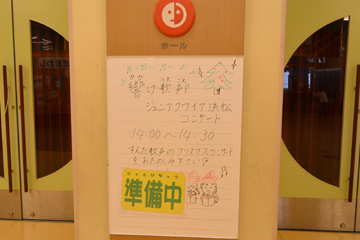 ホール
ひび うた ごえ
響け歌声
ジュニアクワイア浜松
コンサート
14:00～14:30
すんだ歌声のクリスマスコンサート
をおたのしみ下さい♪
じゅんびちゅう
準備中